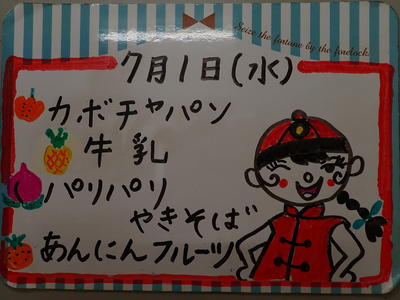 Seize the fortune by the forelock.
7月1日(水)
カボチャパン
牛乳
パリパリ
やきそば
あんにんフルーツ